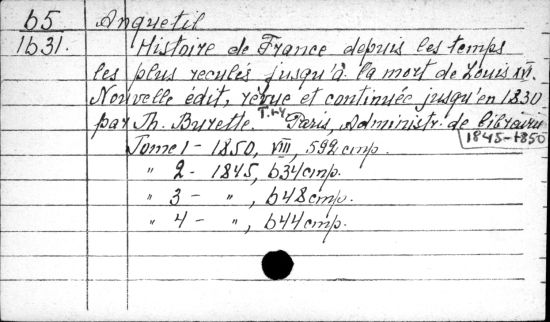 65 Anquetil
1631. Histoire de France depuis les temps
les plus reculés jusqu'à la mort de Louis XVI.
Nouvelle édit, révue et continuée jusqu'en 1830
par Th. Burette. T.1-4 Paris, Administr. de librairie
1845-1850
Tome 1 - 1850, VIII, 592 cmp.
" 2 - 1845, 634 cmp.
" 3 - ", 648 cmp.
" 4 - ", 644 cmp.